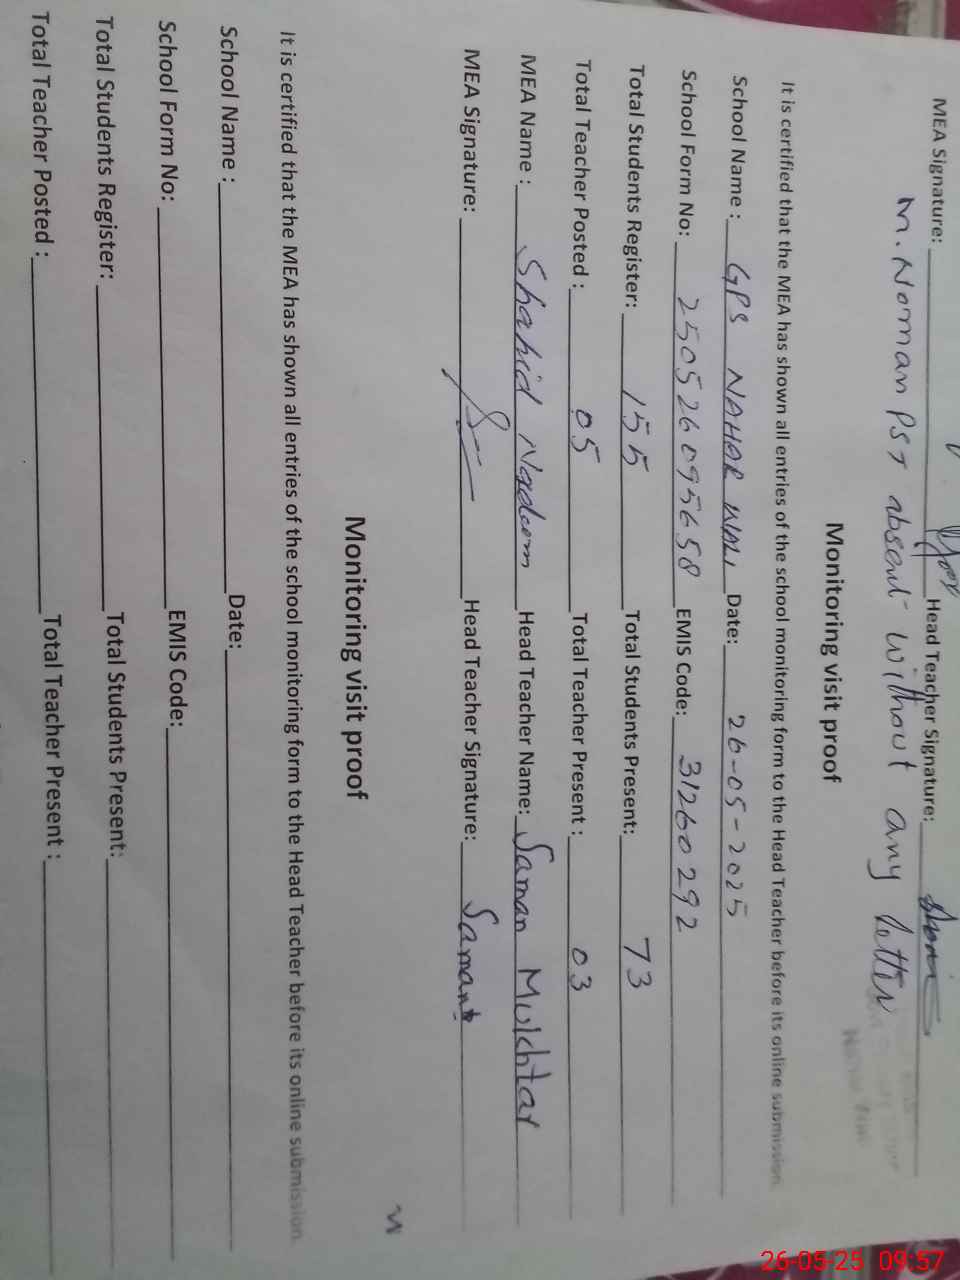 MEA Signature: Head Teacher Signature:
M. Noman PST absent without any letter
Monitoring visit proof
It is certified that the MEA has shown all entries of the school monitoring form to the Head Teacher before its online submission.
School Name : GPS NAHAR WALI Date: 26-05-2025
School Form No: 250526095658 EMIS Code: 31260292
Total Students Register: 155 Total Students Present: 73
Total Teacher Posted : 05 Total Teacher Present : 03
MEA Name : Shahid Nadeem Head Teacher Name: Saman Mukhtar
MEA Signature: Head Teacher Signature: Saman
Monitoring visit proof
It is certified that the MEA has shown all entries of the school monitoring form to the Head Teacher before its online submission.
School Name : Date:
School Form No: EMIS Code:
Total Students Register: Total Students Present:
Total Teacher Posted : Total Teacher Present :
26-05-25 09:57